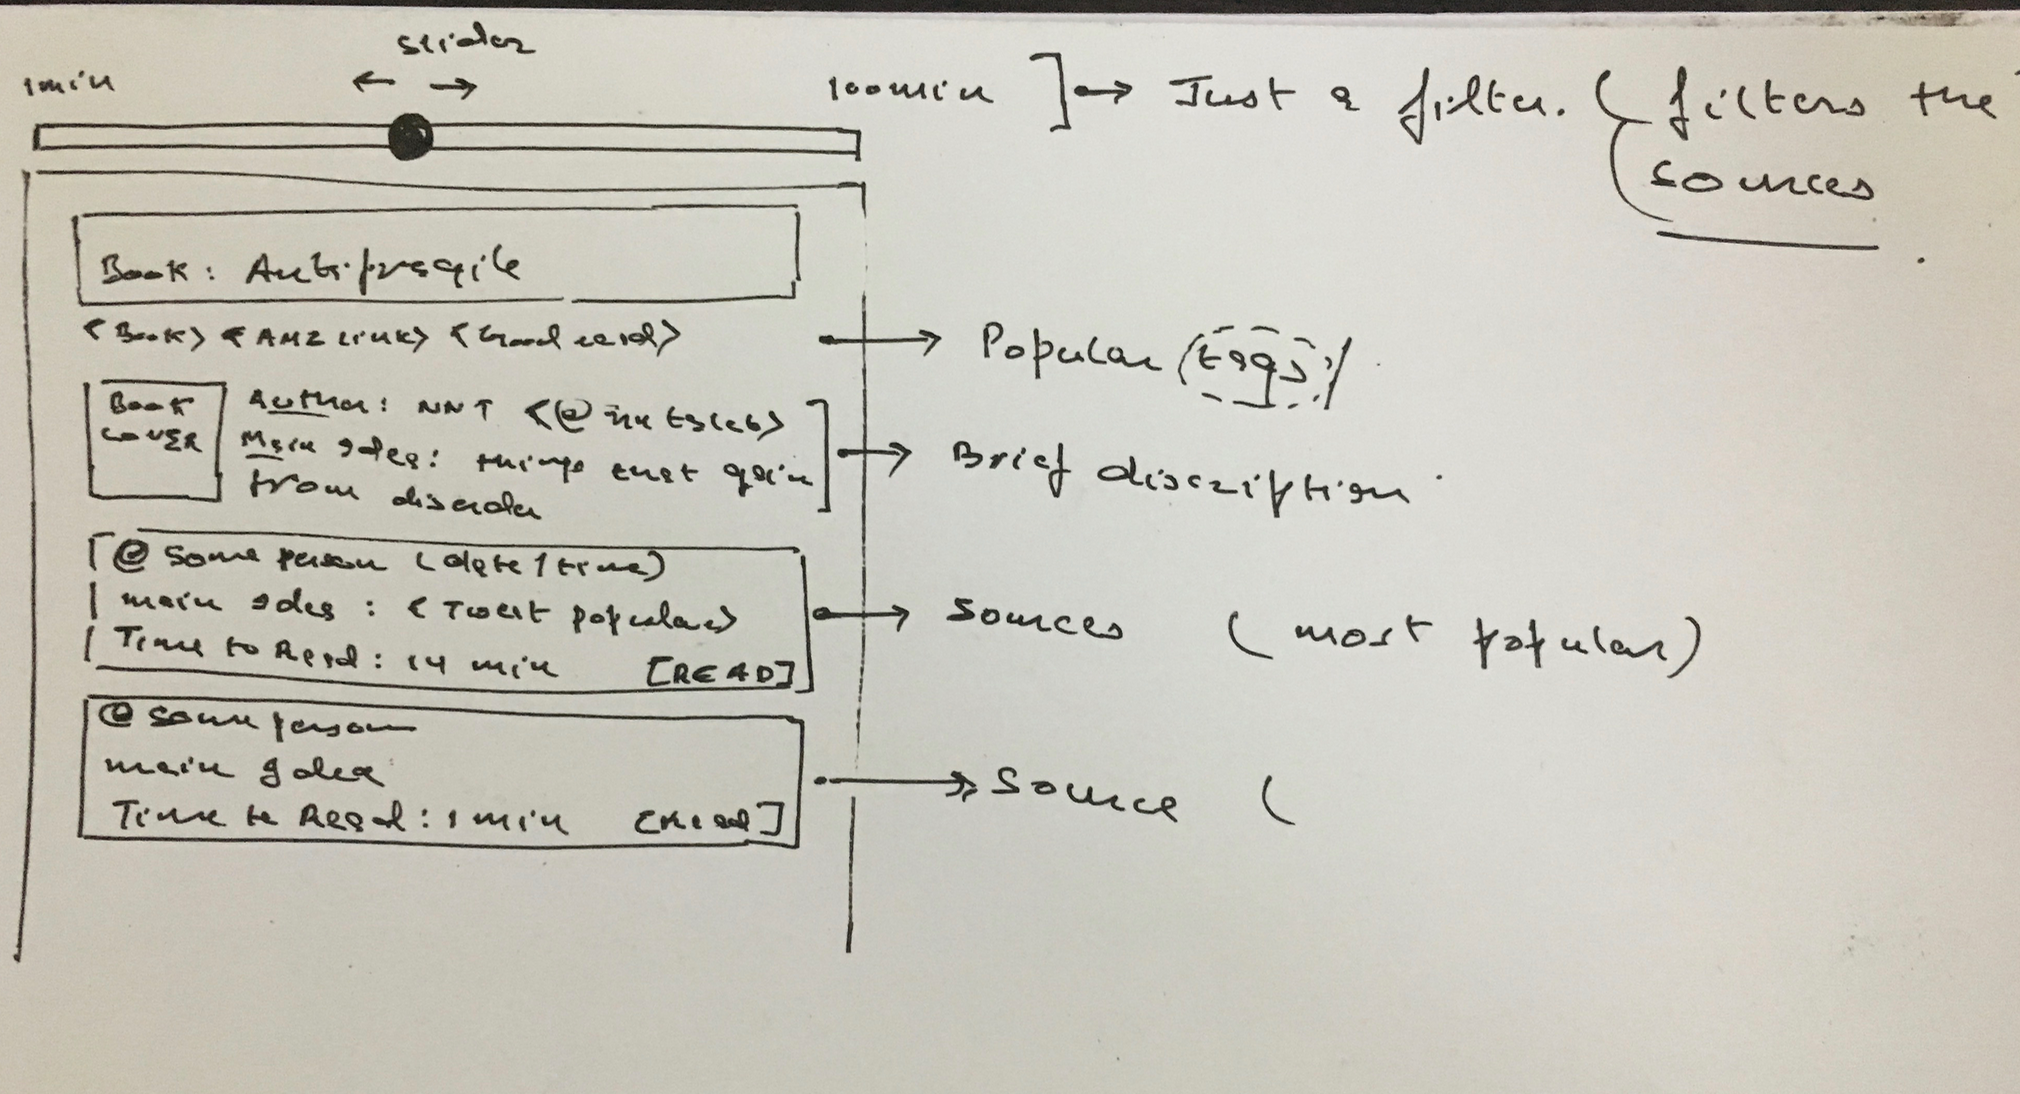 slider
1min ← → 100min ] → Just a filter. ( filters the
sources
Book: Antifragile
<Book> <AMZ link> <Good read> → Popular (tags)
Book
COVER
Author: NNT <@nntaleb>
Main Idea: things that gain
from disorder
→ Brief discription
@ some person (date/time)
main idea : < Tweet popular>
Time to Read : 14 min [READ]
→ Sources ( most popular)
@ some person
main Idea
Time to Read : 1 min [Read]
→ Source (